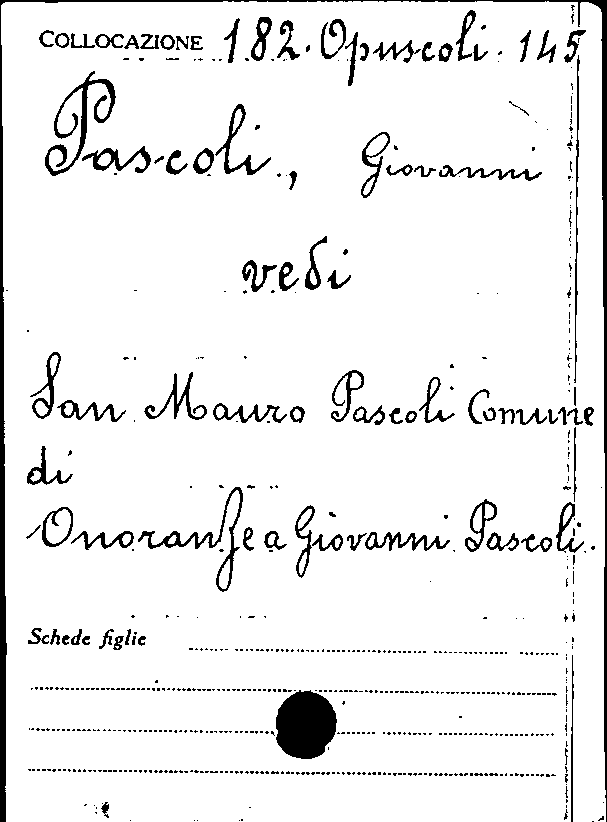 COLLOCAZIONE 182. Opuscoli. 145
Pascoli, Giovanni
vedi
San Mauro Pascoli Comune
di
Onoranze a Giovanni Pascoli.
Schede figlie